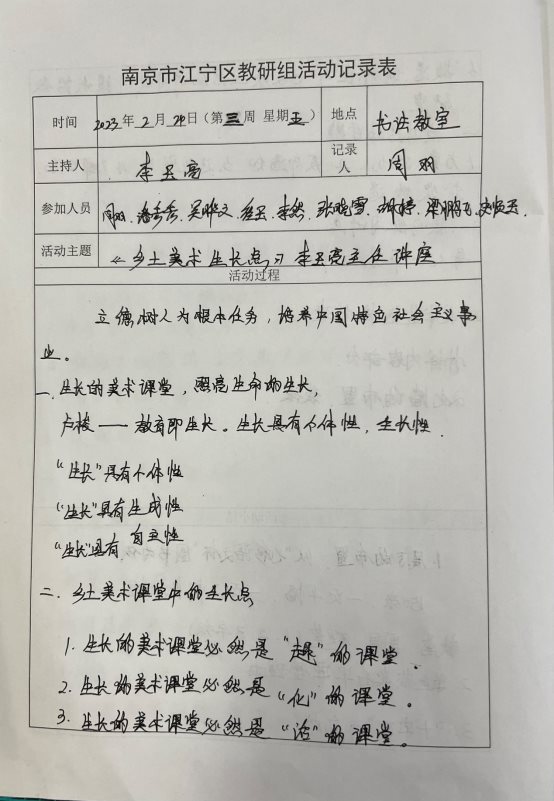 南京市江宁区教研组活动记录表
时间 2023年2月24日（第三周 星期五） 地点 书法教室
主持人 李玉亮 记录人 周羽
参加人员 周羽、潘秀秀、吴晔文、李然、张晓雪、
活动主题 《乡土美术生长点》李玉亮主任讲座
活动过程
立德树人为根本任务，培养中国特色社会主义事
业。
一、生长的美术课堂，照亮生命的生长，
卢梭——教育即生长。生长具有个体性，生长性．
“生长”具有个体性
“生长”具有生成性
“生长”具有自主性
二．乡土美术课堂中的生长点
1．生长的美术课堂必然是“趣”的课堂．
2．生长的美术课堂必然是“化”的课堂。
3．生长的美术课堂必然是“活”的课堂。